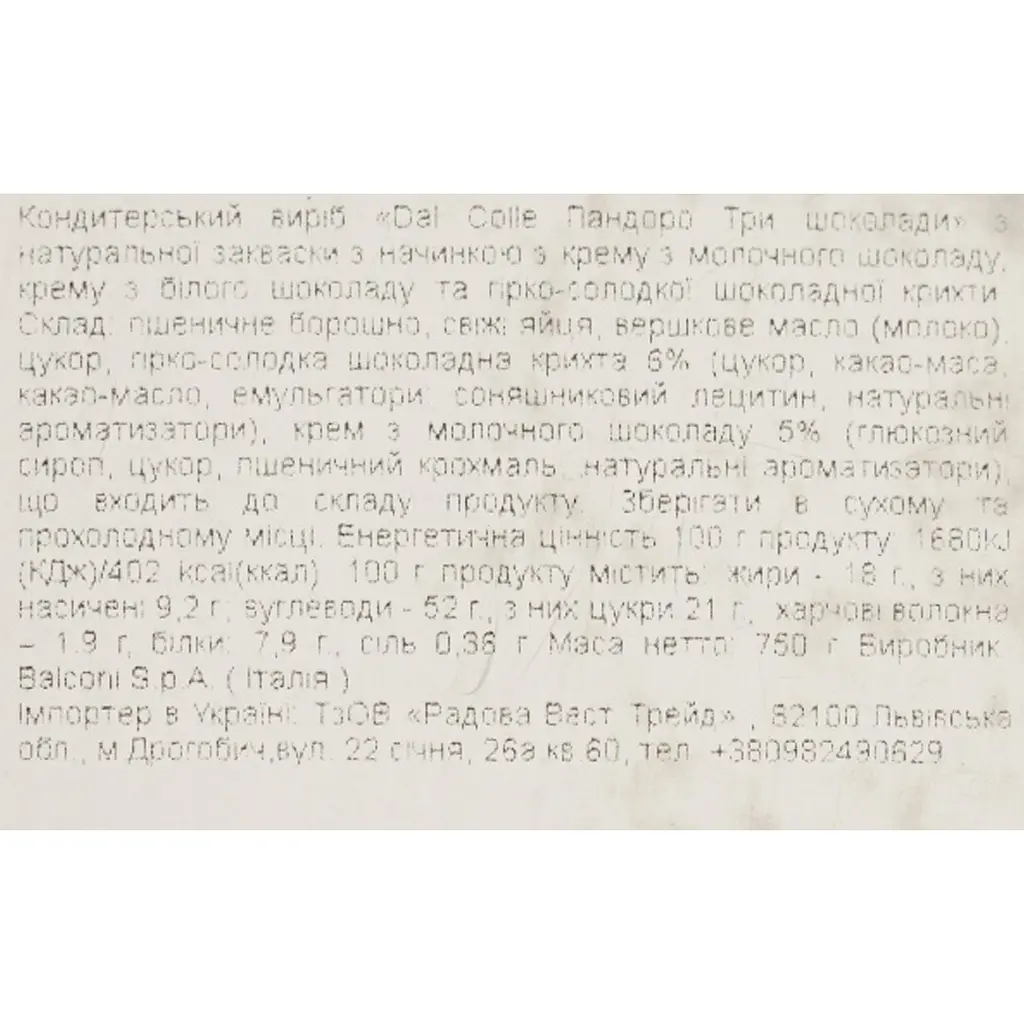 Кондитерський виріб «Dal Colle Пандоро Три шоколади» з
натуральної закваски з начинкою з крему з молочного шоколаду,
крему з білого шоколаду та гірко-солодкої шоколадної крихти.
Склад: пшеничне борошно, свіжі яйця, вершкове масло (молоко),
цукор, гірко-солодка шоколадна крихта 6% (цукор, какао-маса,
какао-масло, емульгатори: соняшниковий лецитин, натуральні
ароматизатори), крем з молочного шоколаду 5% (глюкозний
сироп, цукор, пшеничний крохмаль, натуральні ароматизатори),
що входить до складу продукту. Зберігати в сухому та
прохолодному місці. Енергетична цінність 100 г продукту: 1680kJ
(КДж)/402 kcal(ккал). 100 г продукту містить: жири - 18 г., з них
насичені 9,2 г; вуглеводи - 52 г., з них цукри 21 г., харчові волокна
– 1.9 г, білки: 7,9 г., сіль 0,38 г. Маса нетто: 750 г Виробник:
Balconi S.p.A. ( Італія )
Імпортер в Україні: ТзОВ «Радова Васт Трейд» , 82100 Львівська
обл., м.Дрогобич,вул. 22 січня, 26а кв.60, тел. +380982490629